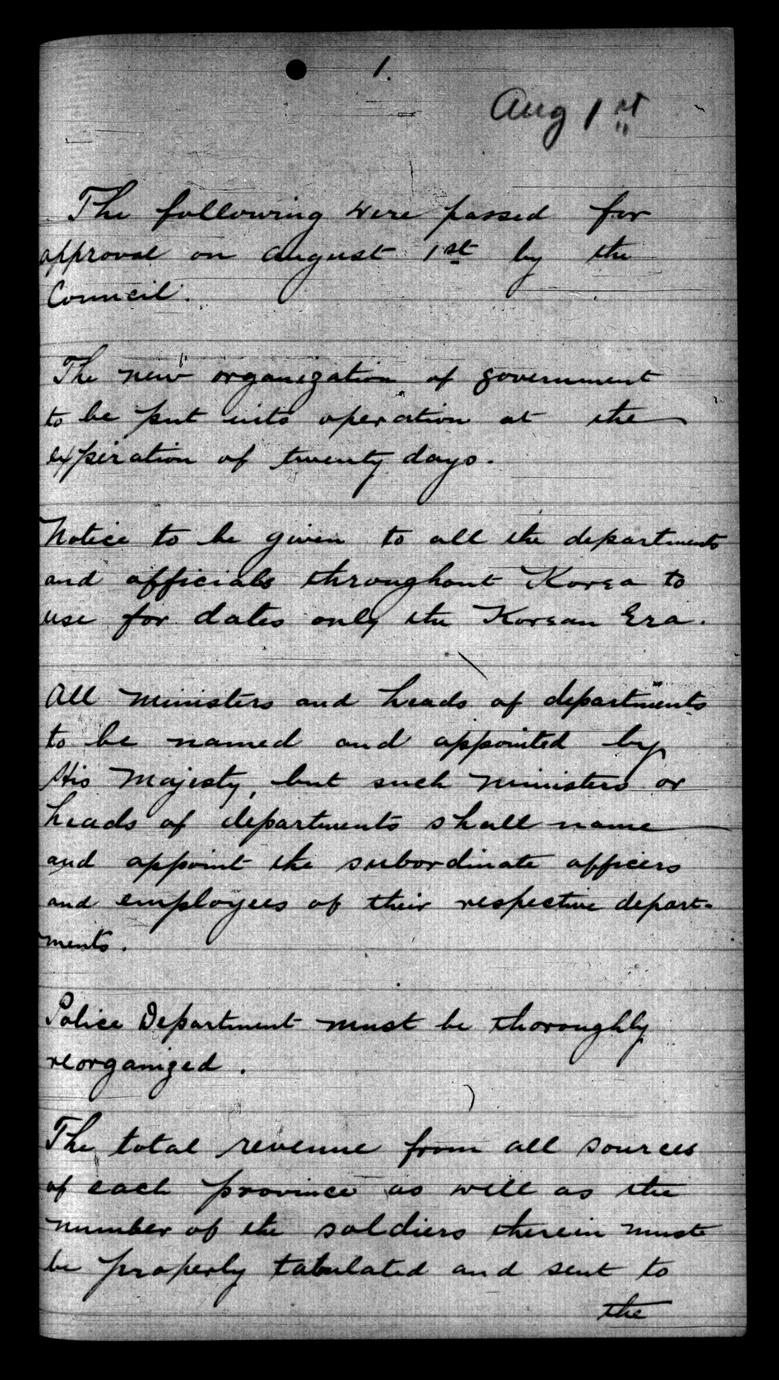 1.
Aug 1st
The following were passed for
approval on August 1st by the
Council.
The new organization of government
to be put into operation at the
expiration of twenty days.
Notice to be given to all the departments
and officials throughout Korea to
use for dates only the Korean Era.
All Ministers and heads of departments
to be named and appointed by
His Majesty, but such Ministers or
heads of departments shall name
and appoint the subordinate officers
and employees of their respective depart-
ments.
Police Department must be thoroughly
reorganized.
The total revenue from all sources
of each province as well as the
number of the soldiers therein must
be properly tabulated and sent to
the